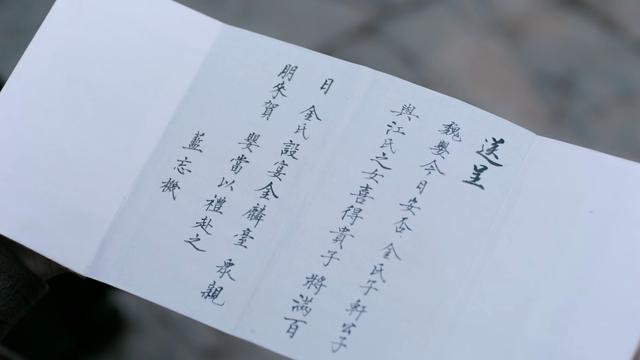 送呈
魏嬰今日安否 金氏子軒公子
與江氏之女喜得貴子將滿百
日 金氏設宴金麟臺 衆親
朋來賀 嬰當以禮赴之
藍忘機